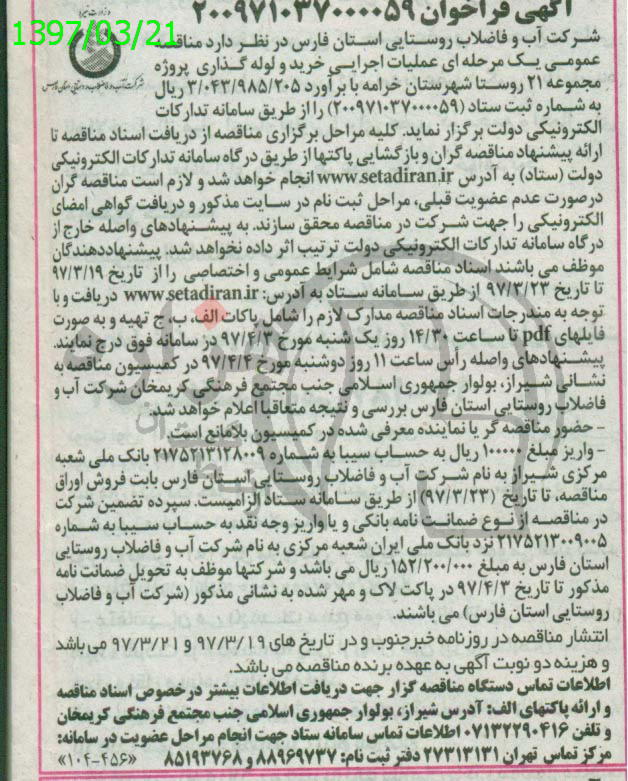 آگهی فراخوان ۲۰۰۹۷۱۰۳۷۰۰۰۰۵۹
1397/03/21
وزارت نیرو
شرکت آب و فاضلاب روستایی استان فارس
شرکت آب و فاضلاب روستایی استان فارس در نظر دارد مناقصه
عمومی یک مرحله ای عملیات اجرایی خرید و لوله گذاری پروژه
مجموعه ۲۱ روستا شهرستان خرامه با برآورد ۳/۰۴۳/۹۸۵/۲۰۵ ریال
به شماره ثبت ستاد (۲۰۰۹۷۱۰۳۷۰۰۰۰۵۹) را از طریق سامانه تدارکات
الکترونیکی دولت برگزار نماید. کلیه مراحل برگزاری مناقصه از دریافت اسناد مناقصه تا
ارائه پیشنهاد مناقصه گران و بازگشایی پاکتها از طریق درگاه سامانه تدارکات الکترونیکی
دولت (ستاد) به آدرس www.setadiran.ir انجام خواهد شد و لازم است مناقصه گران
درصورت عدم عضویت قبلی، مراحل ثبت نام در سایت مذکور و دریافت گواهی امضای
الکترونیکی را جهت شرکت در مناقصه محقق سازند. به پیشنهادهای واصله خارج از
درگاه سامانه تدارکات الکترونیکی دولت ترتیب اثر داده نخواهد شد. پیشنهاددهندگان
موظف می باشند اسناد مناقصه شامل شرایط عمومی و اختصاصی را از تاریخ ۹۷/۳/۱۹
تا تاریخ ۹۷/۳/۲۳ از طریق سامانه ستاد به آدرس: www.setadiran.ir دریافت و با
توجه به مندرجات اسناد مناقصه مدارک لازم را شامل پاکات الف، ب، ج تهیه و به صورت
فایلهای pdf تا ساعت ۱۴/۳۰ روز یک شنبه مورخ ۹۷/۴/۳ در سامانه فوق درج نمایند.
پیشنهادهای واصله رأس ساعت ۱۱ روز دوشنبه مورخ ۹۷/۴/۴ در کمیسیون مناقصه به
نشانی شیراز، بولوار جمهوری اسلامی جنب مجتمع فرهنگی کریمخان شرکت آب و
فاضلاب روستایی استان فارس بررسی و نتیجه متعاقبا اعلام خواهد شد.
- حضور مناقصه گر یا نماینده معرفی شده در کمیسیون بلامانع است.
- واریز مبلغ ۱۰۰۰۰۰ ریال به حساب سیبا به شماره ۲۱۷۵۲۱۳۱۲۸۰۰۹ بانک ملی شعبه
مرکزی شیراز به نام شرکت آب و فاضلاب روستایی استان فارس بابت فروش اوراق
مناقصه، تا تاریخ (۹۷/۳/۲۳) از طریق سامانه ستاد الزامیست. سپرده تضمین شرکت
در مناقصه از نوع ضمانت نامه بانکی و یا واریز وجه نقد به حساب سیبا به شماره
۲۱۷۵۲۱۳۰۰۹۰۰۵ نزد بانک ملی ایران شعبه مرکزی به نام شرکت آب و فاضلاب روستایی
استان فارس به مبلغ ۱۵۲/۲۰۰/۰۰۰ ریال می باشد و شرکتها موظف به تحویل ضمانت نامه
مذکور تا تاریخ ۹۷/۴/۳ در پاکت لاک و مهر شده به نشانی مذکور (شرکت آب و فاضلاب
روستایی استان فارس) می باشند.
انتشار مناقصه در روزنامه خبرجنوب و در تاریخ های ۹۷/۳/۱۹ و ۹۷/۳/۲۱ می باشد
و هزینه دو نوبت آگهی به عهده برنده مناقصه می باشد.
اطلاعات تماس دستگاه مناقصه گزار جهت دریافت اطلاعات بیشتر درخصوص اسناد مناقصه
و ارائه پاکتهای الف: آدرس شیراز، بولوار جمهوری اسلامی جنب مجتمع فرهنگی کریمخان
و تلفن ۰۷۱۳۲۲۹۰۴۱۶ اطلاعات تماس سامانه ستاد جهت انجام مراحل عضویت در سامانه:
مرکز تماس تهران ۲۷۳۱۳۱۳۱ دفتر ثبت نام: ۸۸۹۶۹۷۳۷ و ۸۵۱۹۳۷۶۸ «۱۰۴-۴۵۶»